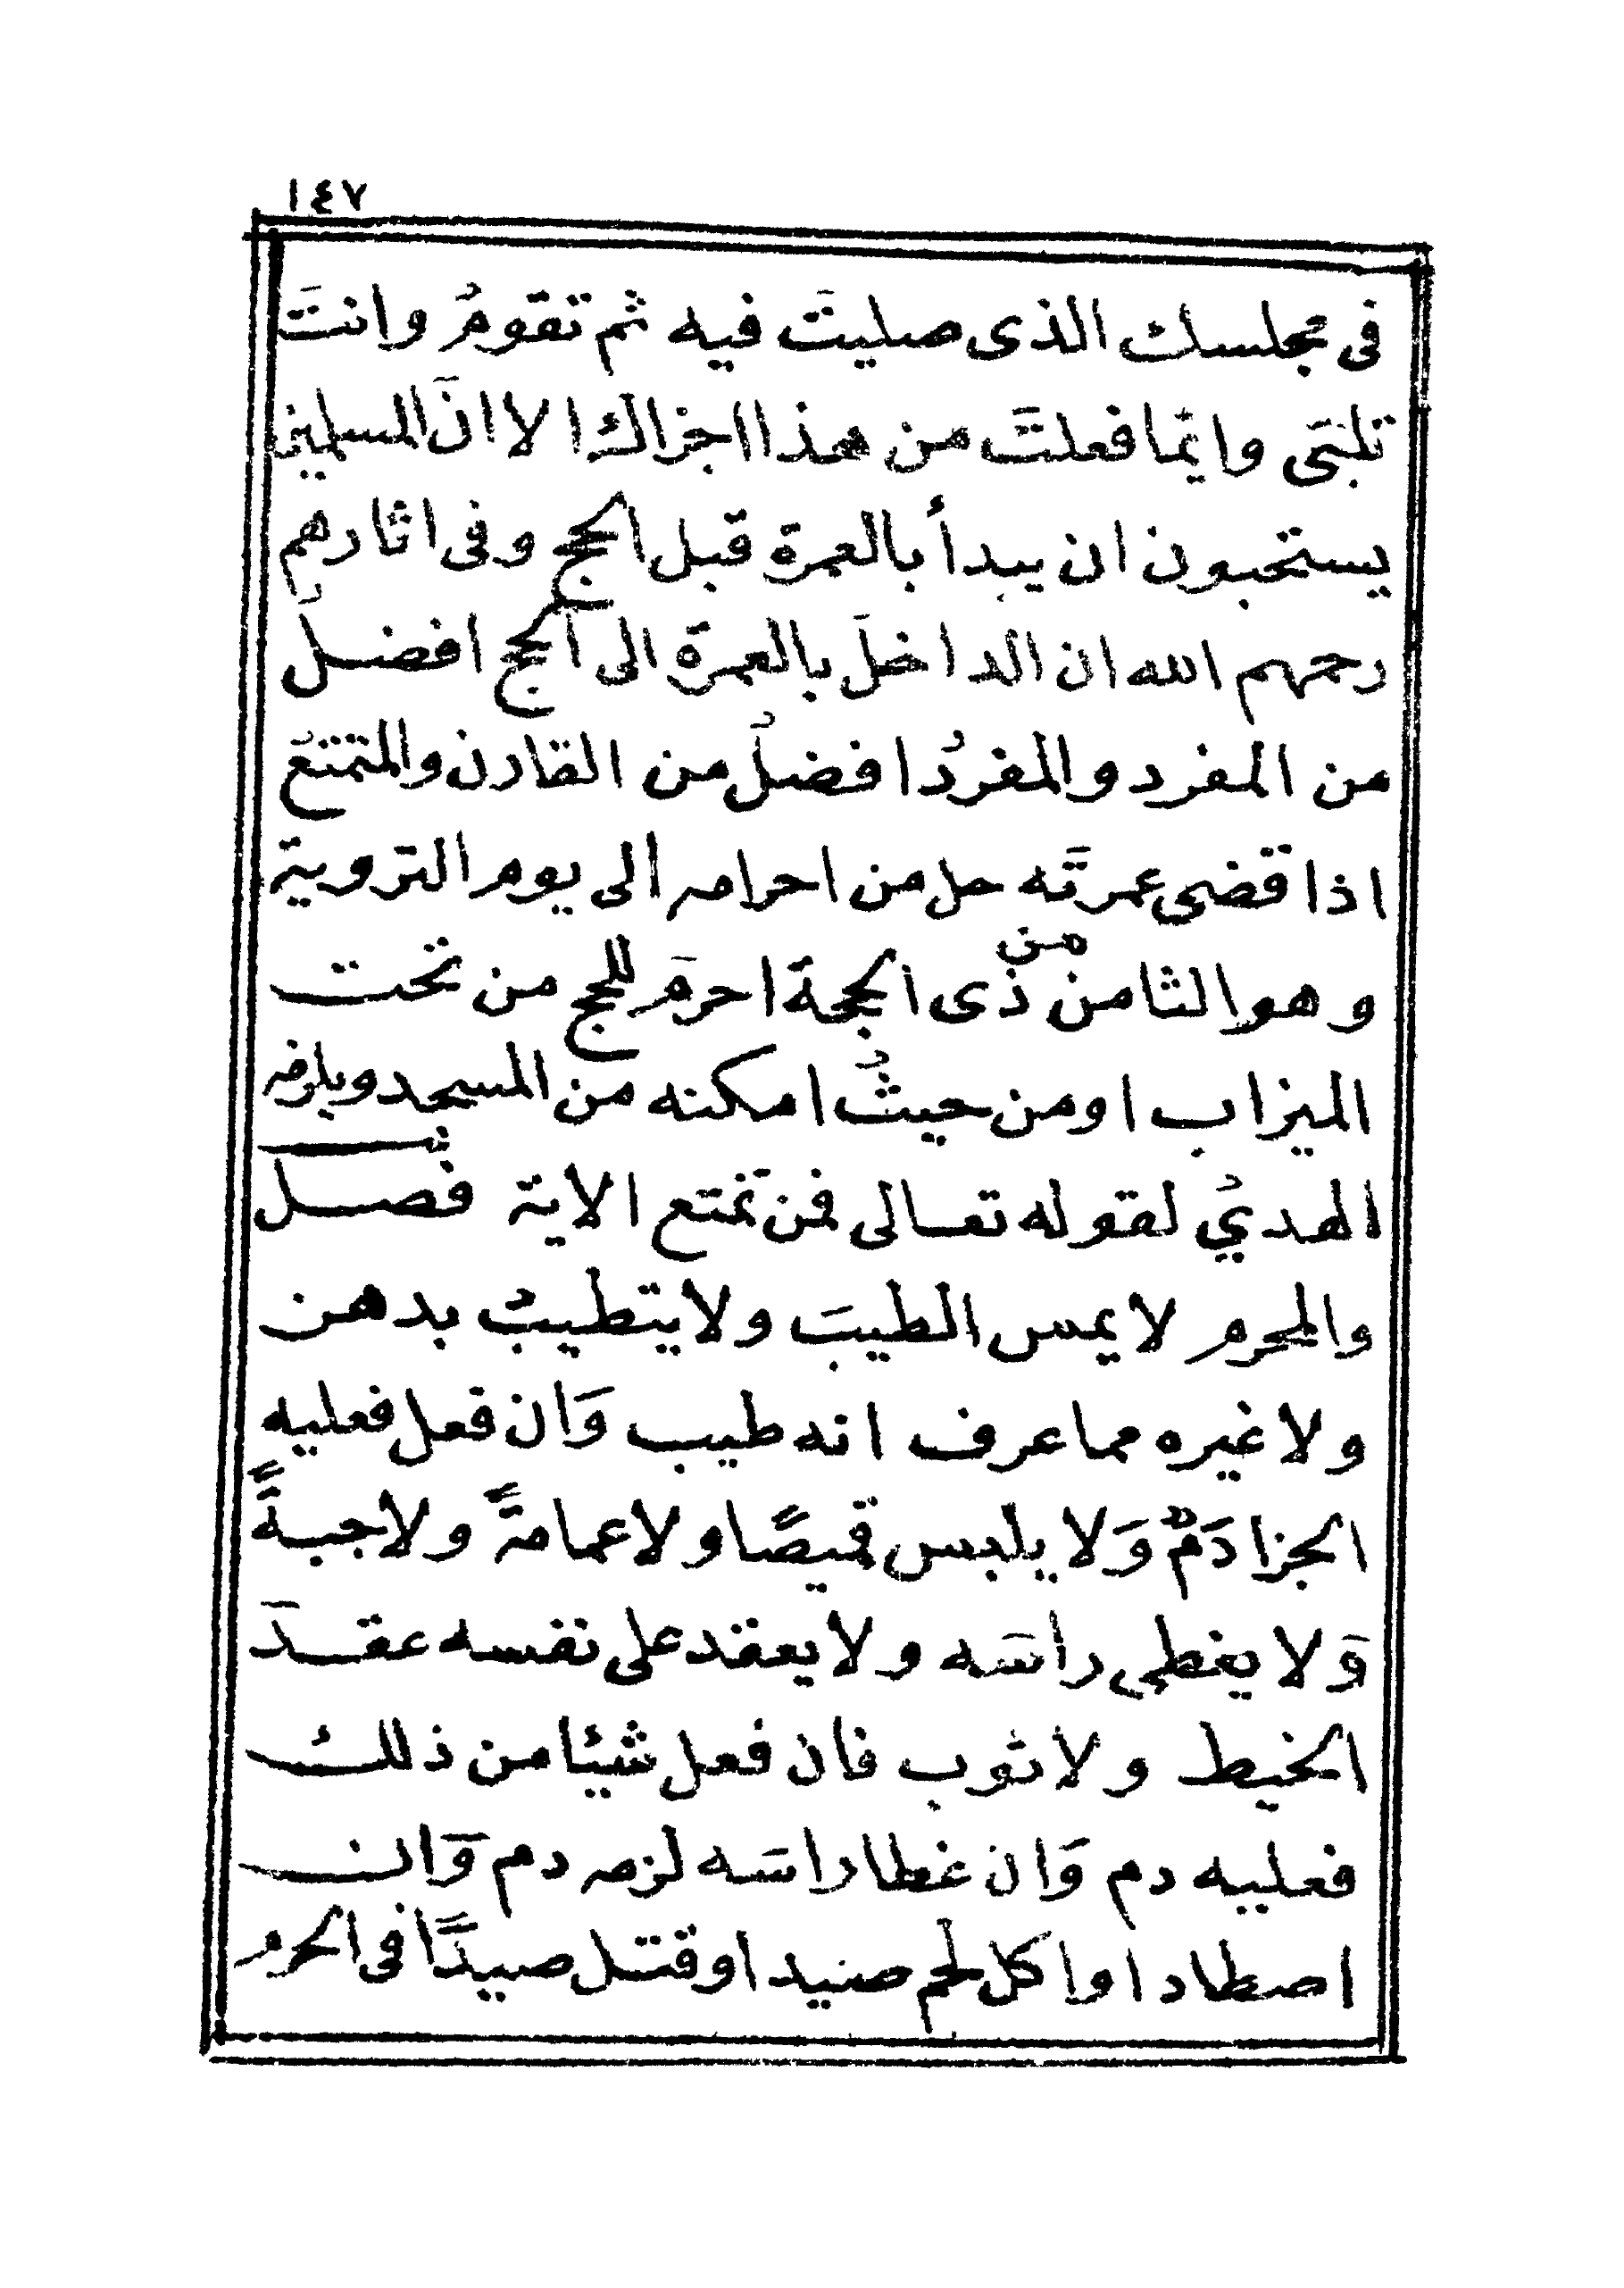 ١٤٧
فى مجلسك الذى صليتَ فيه ثم تقومُ وانتَ
تلبّى وايّما فعلتَ من هذا اجزاك الا انَّ المسلمين
يستحبون ان يبدأ بالعمرة قبل الحج وفى اثارهم
رحمهم الله ان الداخلَ بالعمرة الى الحج افضلُ
من المفرد والمفردُ افضلُ من القارن والمتمتعُ
اذا قضى عمرتَه حل من احرامه الى يوم التروية
وهو الثامن من ذى الحجة احرمَ للحج من تحت
الميزاب او من حيثُ امكنه من المسجد ويلزمه
الهديُ لقوله تعالى فمن تمتع الاية فصل
والمحرم لا يمس الطيبَ ولا يتطيبُ بدهن
ولا غيره مما عرف انه طيب وَان فعل فعليه
الجزا دَمٌ وَلا يلبس قميصًا ولا عمامةً ولا جبةً
وَلا يغطى راسَه ولا يعقد على نفسه عقدَ
الخيط ولا ثوب فان فعل شيئا من ذلك
فعليه دم وَان غطا راسَه لزمه دم وَان
اصطاد او اكل لحم صيد او قتل صيدًا فى الحرم